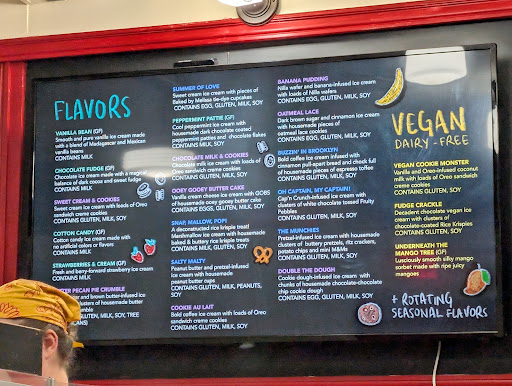 FLAVORS
VANILLA BEAN (GF)
Smooth and pure vanilla ice cream made
with a blend of Madagascar and Mexican
vanilla beans
CONTAINS MILK
CHOCOLATE FUDGE (GF)
Chocolate ice cream made with a magical
balance of dark cocoa and sweet fudge
CONTAINS MILK
SWEET CREAM & COOKIES
Sweet cream ice cream with loads of Oreo
sandwich creme cookies
CONTAINS GLUTEN, MILK, SOY
COTTON CANDY (GF)
Cotton candy ice cream made with
no artificial colors
CONTAINS MILK
STRAWBERRIES & CREAM (GF)
Fresh and berry-forward strawberry ice cream
CONTAINS MILK
BUTTER PECAN PIE CRUMBLE
and brown butter-infused ice
of housemade butter
crumble
GLUTEN, MILK, SOY, TREE
SUMMER OF LOVE
Sweet cream ice cream with pieces of
Baked by Melissa tie-dye cupcakes
CONTAINS EGG, GLUTEN, MILK, SOY
PEPPERMINT PATTIE (GF)
Cool peppermint ice cream with
housemade dark chocolate coated
peppermint patties and chocolate flakes
CONTAINS MILK, SOY
CHOCOLATE MILK & COOKIES
Chocolate milk ice cream with loads of
Oreo sandwich creme cookies
CONTAINS GLUTEN, MILK, SOY
OOEY GOOEY BUTTER CAKE
Vanilla cream cheese ice cream with GOBS
of housemade ooey gooey butter cake
CONTAINS EGG, GLUTEN, MILK, SOY
SNAP, MALLOW, POP!
A deconstructed rice krispie treat!
Marshmallow ice cream with housemade
baked & buttery rice krispie treats
CONTAINS GLUTEN, MILK, SOY
SALTY MALTY
Peanut butter and pretzel-infused
ice cream with housemade
peanut butter cups
CONTAINS GLUTEN, MILK, PEANUTS,
SOY
COOKIE AU LAIT
Bold coffee ice cream with loads of Oreo
sandwich creme cookies
CONTAINS GLUTEN, MILK, SOY
BANANA PUDDING
Nilla wafer and banana-infused ice cream
with loads of Nilla wafers
CONTAINS EGG, GLUTEN, MILK, SOY
OATMEAL LACE
Dark brown sugar and cinnamon ice cream
with housemade pieces of
oatmeal lace cookies
CONTAINS EGG, GLUTEN, MILK, SOY
BUZZIN' IN BROOKLYN
Bold coffee ice cream infused with
cinnamon pull-apart bread and chock full
of housemade pieces of espresso toffee
CONTAINS GLUTEN, MILK, SOY
OH CAPTAIN, MY CAPTAIN!
Cap'n Crunch-infused ice cream with
clusters of white chocolate tossed Fruity
Pebbles
CONTAINS GLUTEN, MILK, SOY
THE MUNCHIES
Pretzel-infused ice cream with housemade
clusters of buttery pretzels, ritz crackers,
potato chips and mini M&Ms
CONTAINS GLUTEN, MILK, SOY
DOUBLE THE DOUGH
Cookie dough-infused ice cream with
chunks of housemade chocolate-chocolate
chip cookie dough
CONTAINS EGG, GLUTEN, MILK, SOY
VEGAN
DAIRY-FREE
VEGAN COOKIE MONSTER
Vanilla and Oreo-infused coconut
milk with loads of Oreo sandwich
creme cookies
CONTAINS GLUTEN, SOY
FUDGE CRACKLE
Decadent chocolate vegan ice
cream with clusters of
chocolate-coated Rice Krispies
CONTAINS GLUTEN, SOY
UNDERNEATH THE
MANGO TREE (GF)
Lusciously smooth silky mango
sorbet made with ripe juicy
mangoes
+ ROTATING
SEASONAL FLAVORS